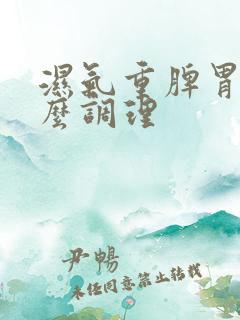 濕氣重脾胃
麼調理
尹暢
未經同意禁止轉載